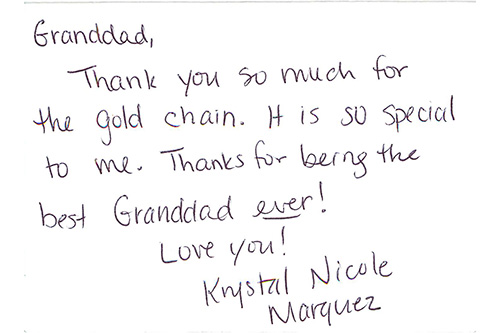 Granddad,
Thank you so much for
the gold chain. It is so special
to me. Thanks for being the
best Granddad ever!
Love you!
Krystal Nicole
Marquez